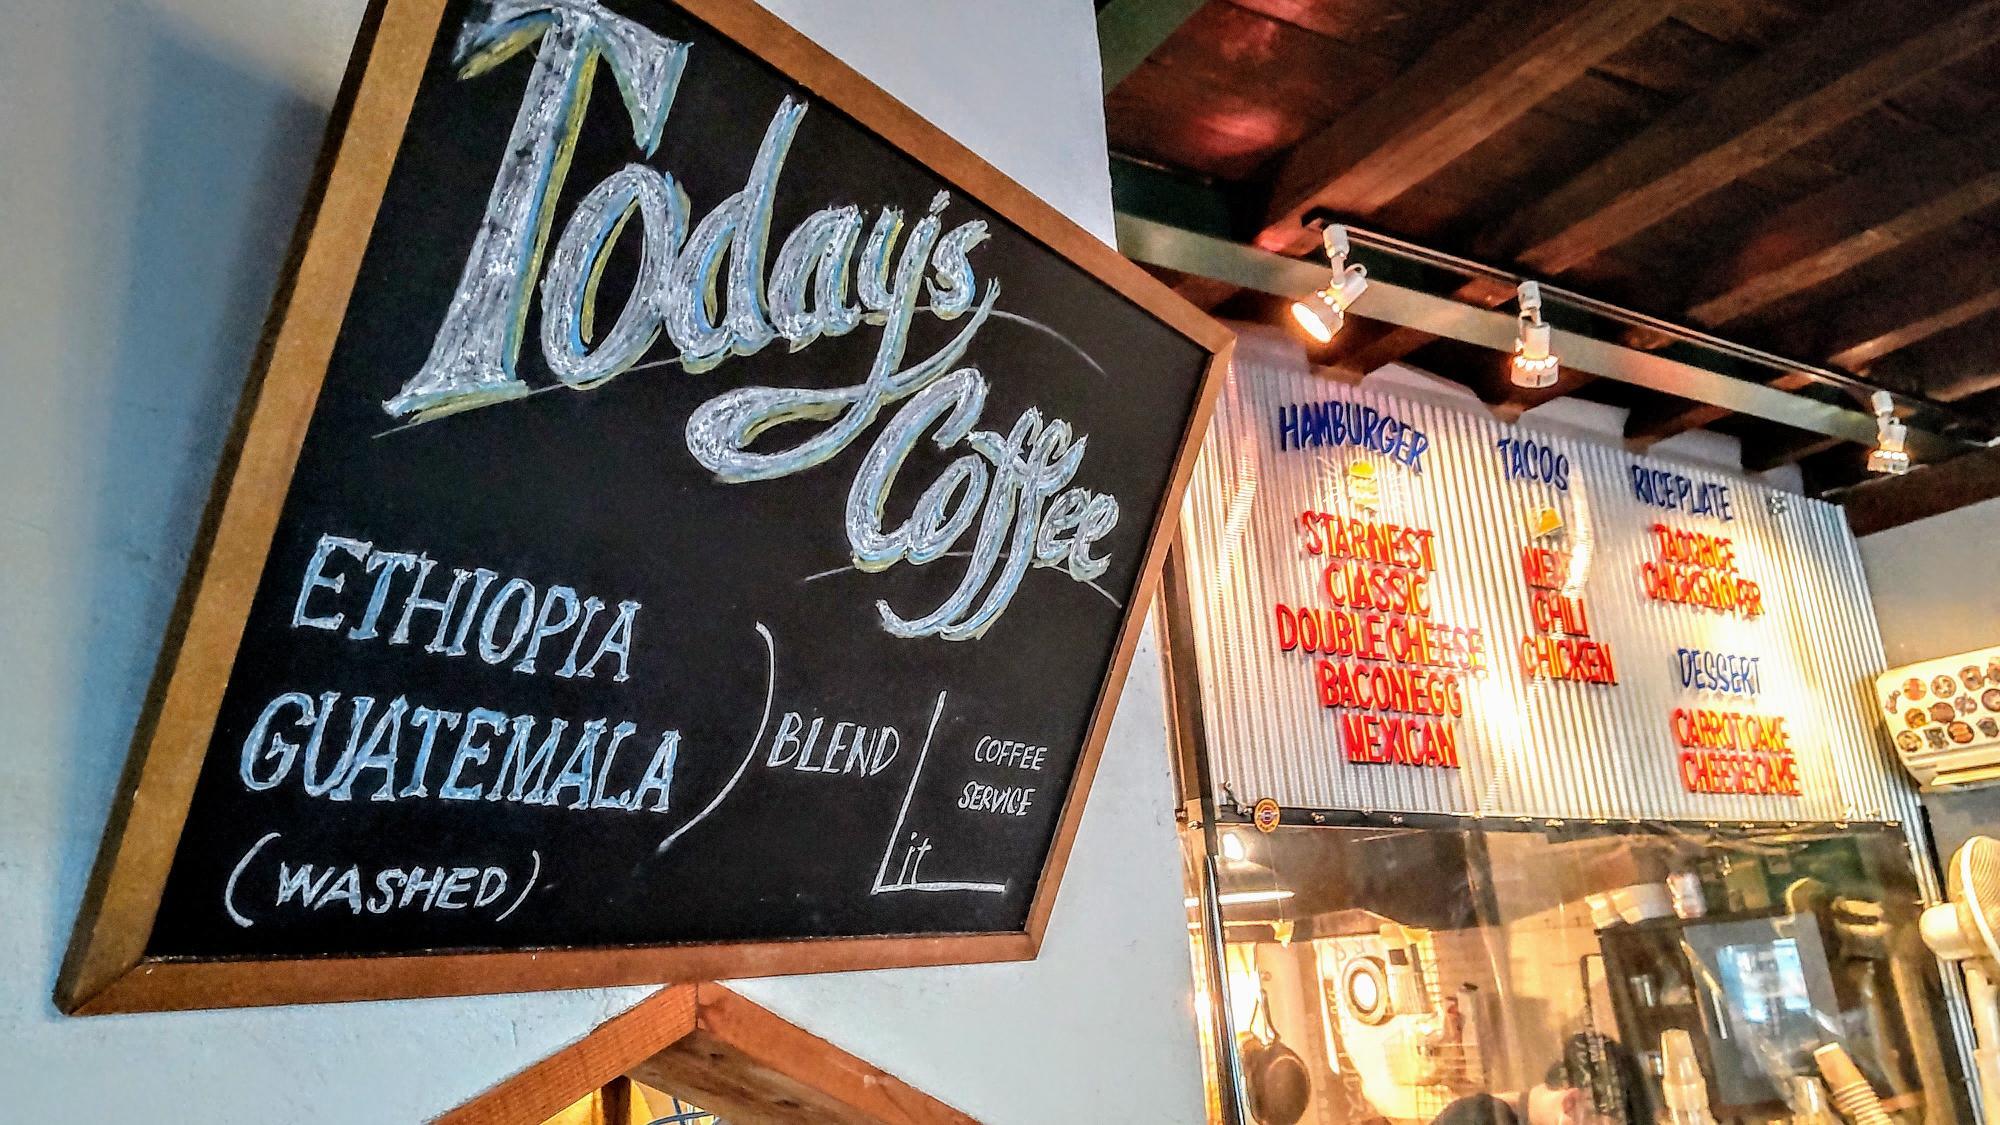 Today's
Coffee
ETHIOPIA
GUATEMALA
(WASHED)
BLEND
COFFEE
SERVICE
Lit
HAMBURGER
STARNEST
CLASSIC
DOUBLE CHEESE
BACON EGG
MEXICAN
TACOS
CHILI
CHICKEN
RICE PLATE
TACORICE
DESSERT
CARROT CAKE
CHEESECAKE